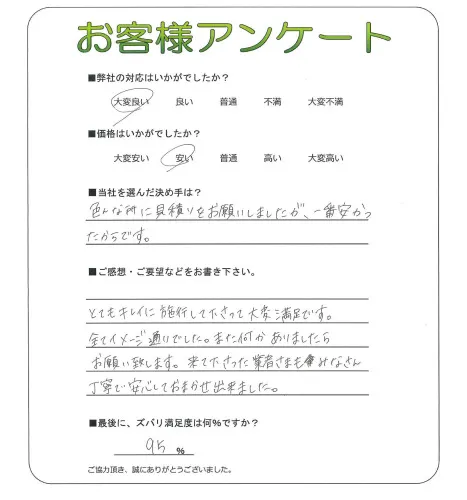 お客様アンケート
■弊社の対応はいかがでしたか？
大変良い 良い 普通 不満 大変不満
■価格はいかがでしたか？
大変安い 安い 普通 高い 大変高い
■当社を選んだ決め手は？
色んな所に見積りをお願いしましたが、一番安かっ
たからです。
■ご感想・ご要望などをお書き下さい。
とてもキレイに施行して下さって大変満足です。
全てイメージ通りでした。また何かありましたら
お願い致します。来て下さった業者さまもみなさん
丁寧で安心しておまかせ出来ました。
■最後に、ズバリ満足度は何%ですか？
95 %
ご協力頂き、誠にありがとうございました。